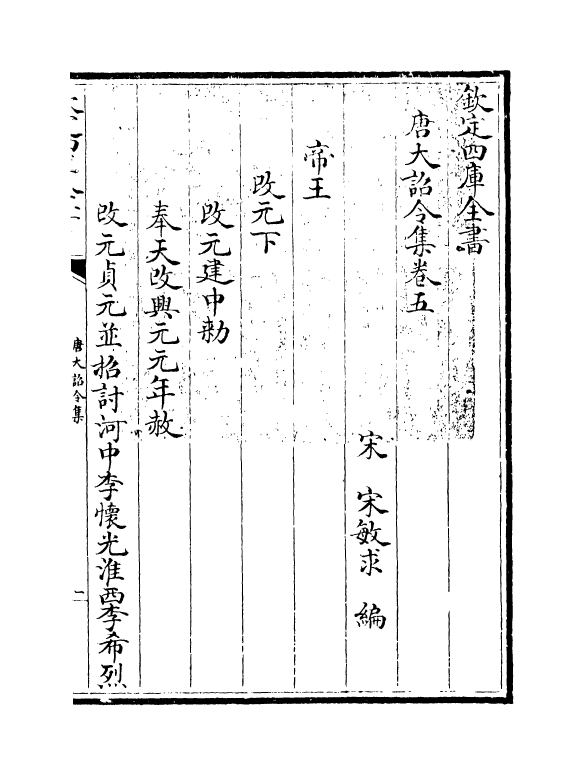 欽定四庫全書
唐大詔令集卷五
宋　宋敏求　編
帝王
改元下
改元建中勑
奉天改興元元年赦
改元貞元並招討河中李懷光淮西李希烈
唐大詔令集